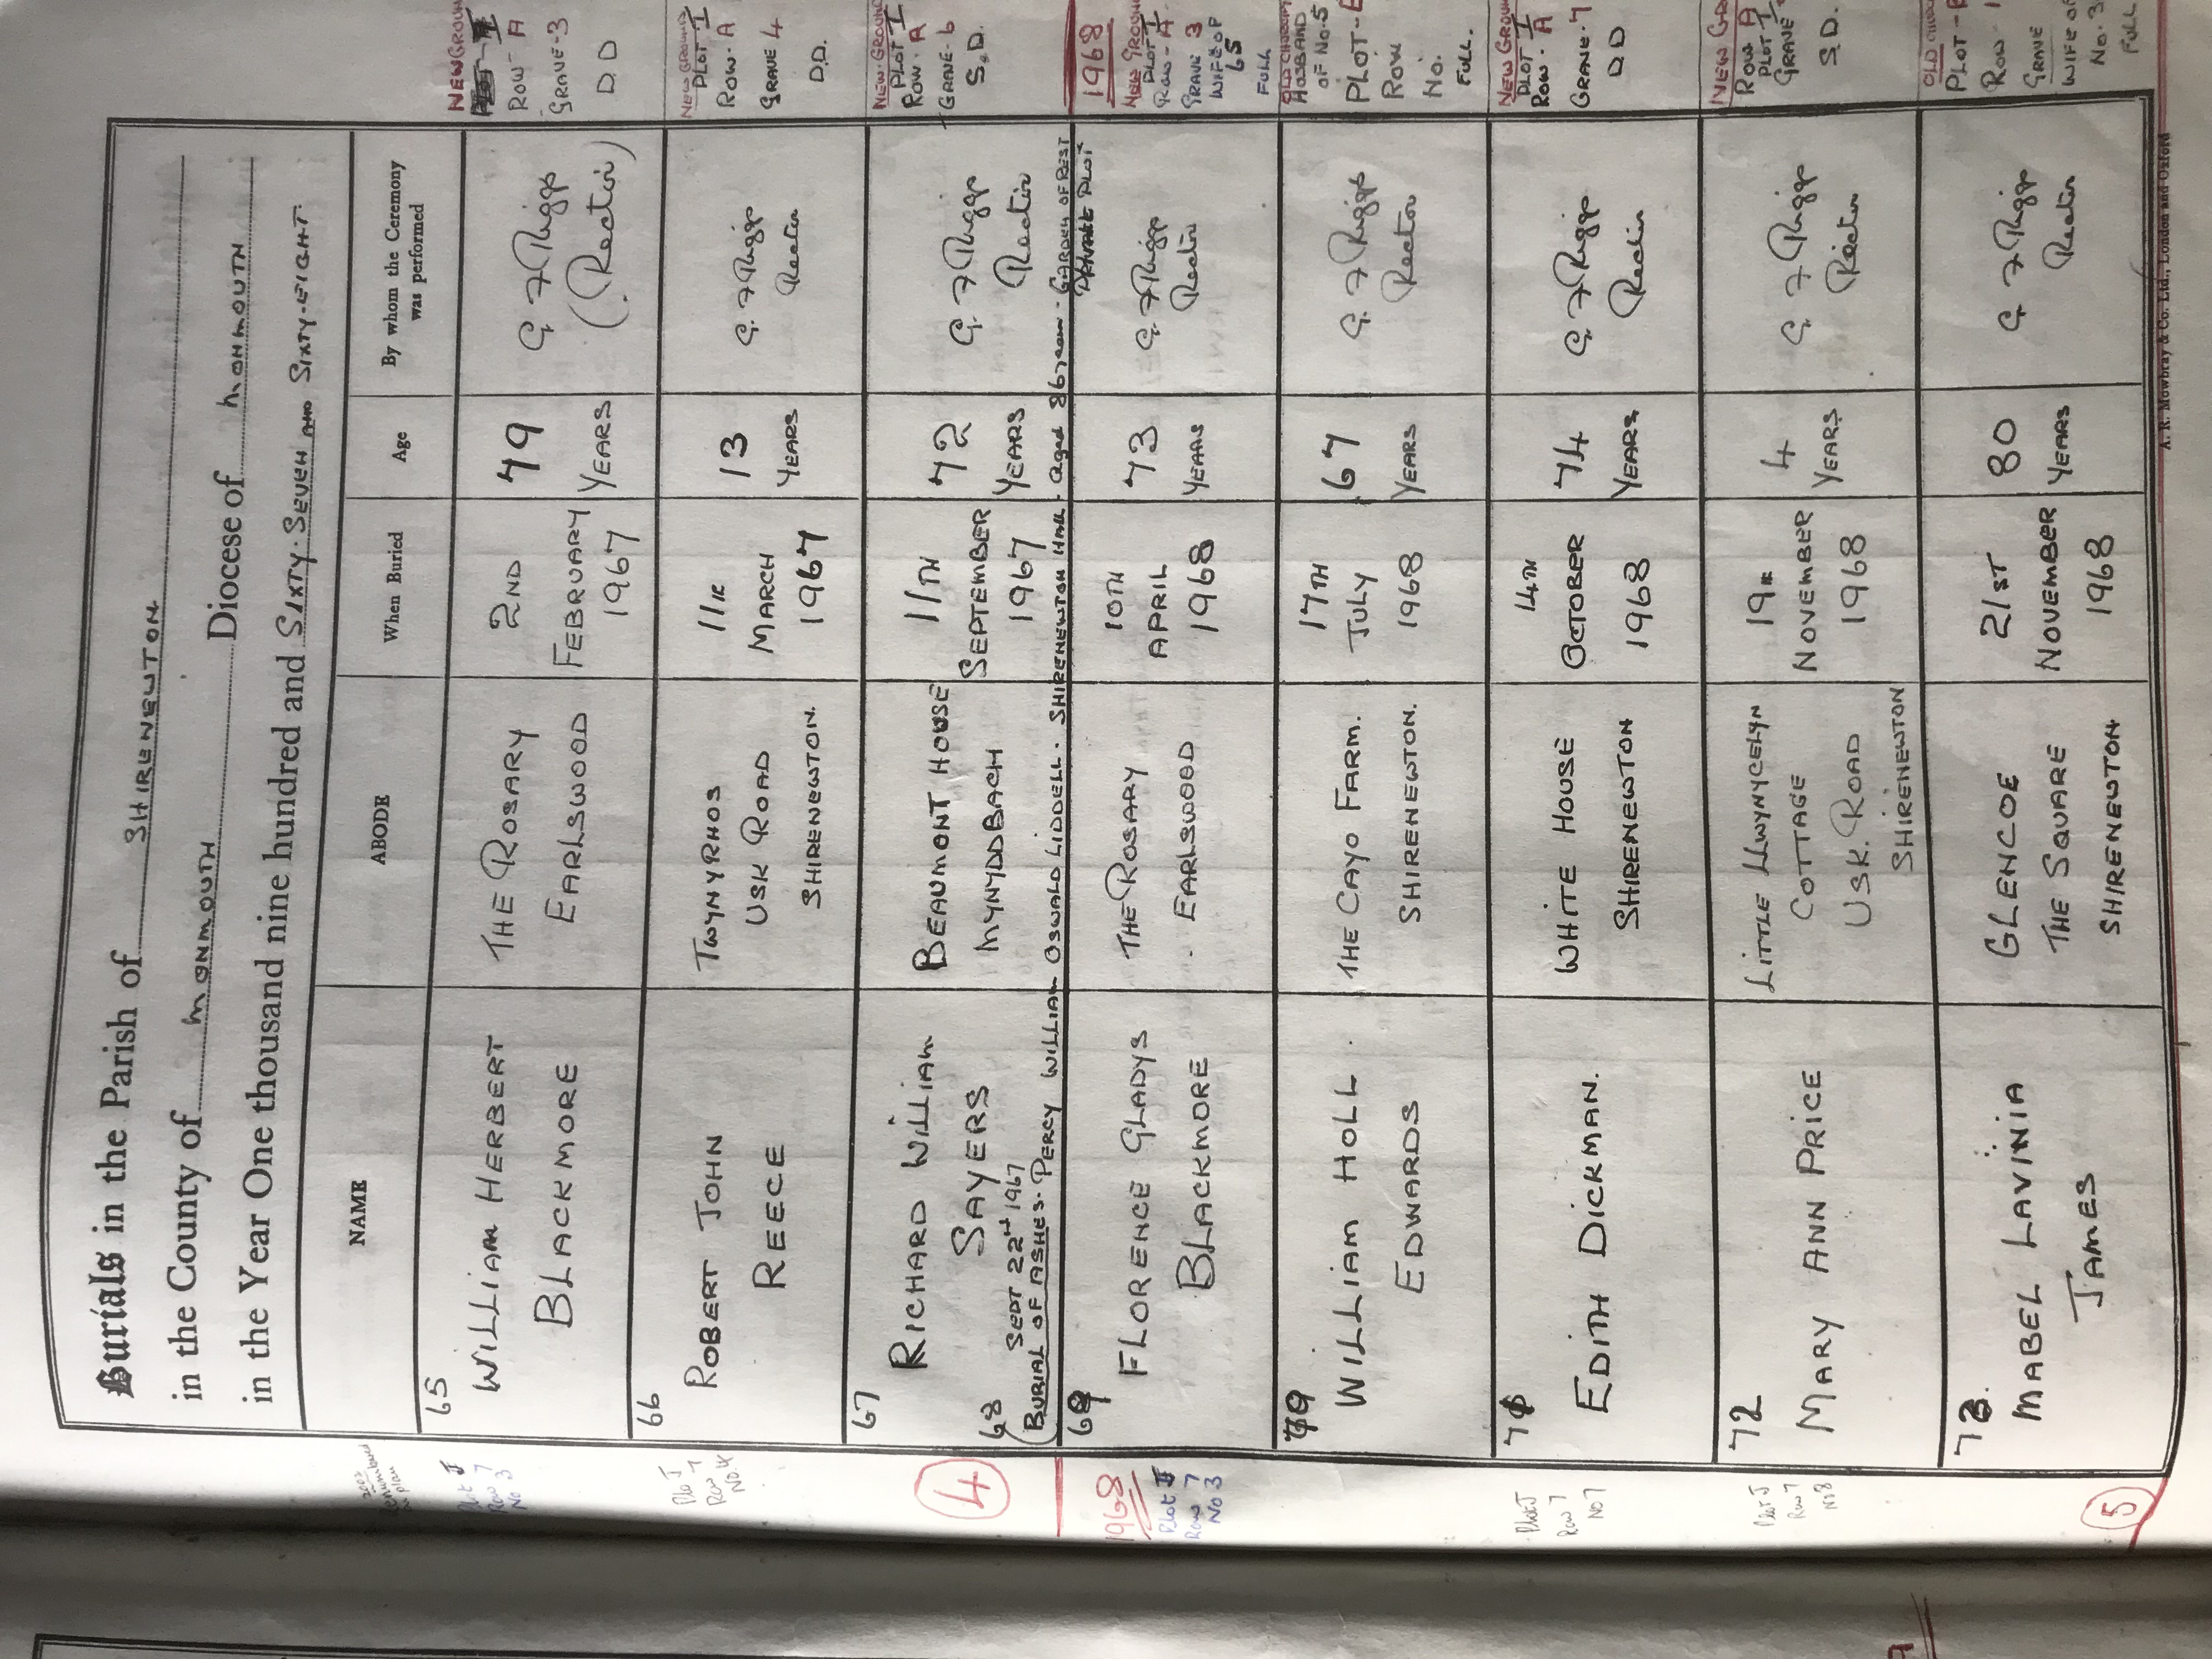 Burials in the Parish of SHIRENEWTON
in the County of MONMOUTH Diocese of MONMOUTH
in the Year One thousand nine hundred and SIXTY-SEVEN AND SIXTY-EIGHT
NAME ABODE When Buried Age By whom the Ceremony was performed
2003
Plot J
Row 7
No 3
65
WILLIAM HERBERT
BLACKMORE
THE ROSARY
EARLSWOOD
2ND
FEBRUARY
1967
79
YEARS
(Rector)
NEW GROUN
ROW-A
GRAVE-3
D.D
Plot J
Row 7
No 4
66
ROBERT JOHN
REECE
TWYNYRHOS
USK ROAD
SHIRENEWTON.
11th
MARCH
1967
13
YEARS
Rector
NEW GROUND
PLOT I
ROW. A
GRAVE 4
D.D.
67
RICHARD WILLIAM
SAYERS
BEAUMONT HOUSE
MYNYDDBACH
11TH
SEPTEMBER
1967
72
YEARS
Rector
NEW. GROUND
PLOT I
ROW. A
GRAVE. 6
S.D.
4
68 SEPT 22nd 1967
(BURIAL OF ASHES. PERCY WILLIAM OSWALD LIDDELL. SHIRENEWTON HALL. aged 86 years. GARDEN OF REST
PLOT
1968
Plot J
Row 7
No 3
69
FLORENCE GLADYS
BLACKMORE
THE ROSARY
EARLSWOOD
10TH
APRIL
1968
73
YEARS
Rector
1968
NEW GROUN
PLOT I
ROW-A.
GRAVE 3
WIFE OF
65
FULL
70
WILLIAM HOLL.
EDWARDS
THE CAYO FARM.
SHIRENEWTON.
17TH
JULY
1968
67
YEARS
Rector
HUSBAND
OF NO.5
PLOT-E
ROW
NO.
FULL.
Plot J
Row 7
No 7
71
EDITH DICKMAN.
WHITE HOUSE
SHIRENEWTON
14TH
OCTOBER
1968
74
YEARS
Rector
NEW GROUN
PLOT I
ROW. A
GRAVE. 7
D D
Plot J
Row 7
No 8
72
MARY ANN PRICE
LITTLE LLWYNYCELYN
COTTAGE
USK. ROAD
SHIRENEWTON
19th
NOVEMBER
1968
4
YEARS
Rector
NEW GR
ROW A
PLOT I
GRAVE
S.D.
73.
MABEL LAVINIA
JAMES
GLENCOE
THE SQUARE
SHIRENEWTON
21ST
NOVEMBER
1968
80
YEARS
Rector
PLOT-
ROW-
GRAVE
WIFE OF
NO. 3
FULL
5
A. R. Mowbray & Co. Ltd., London and Oxford